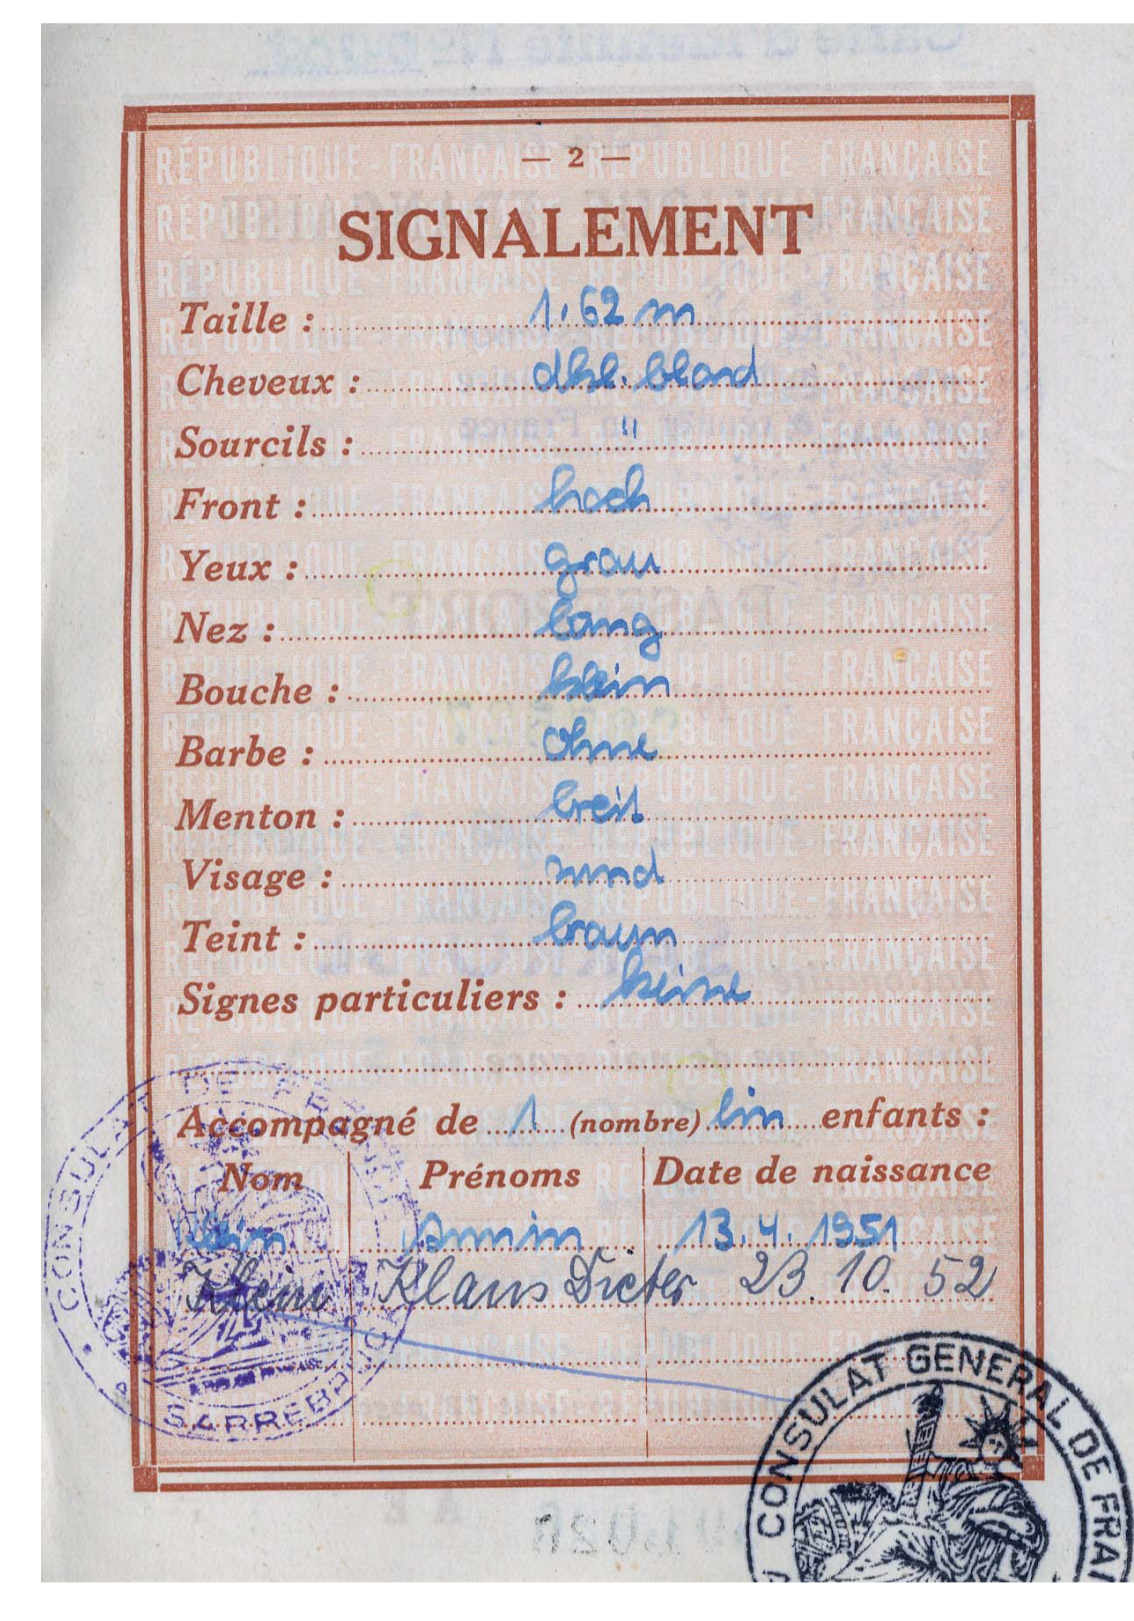 — 2 —
SIGNALEMENT
Taille : 1.62 m
Cheveux : dkl. blond
Sourcils : "
Front : hoch
Yeux : grau
Nez : lang
Bouche : klein
Barbe : ohne
Menton : breit
Visage : rund
Teint : braun
Signes particuliers : keine
Accompagné de 1 (nombre) enfants :
Nom Prénoms Date de naissance
Klein Armin 13.4.1951
Klein Klaus Dieter 23.10.52
CONSULAT DE FRANCE
SARREBRUCK
CONSULAT GENERAL DE FRA